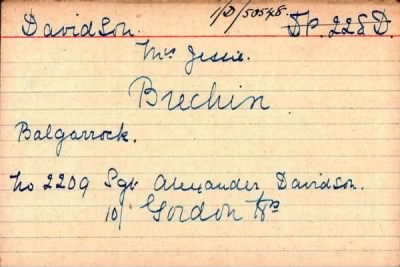 Davidson. 1/D/50548. Sp. 228D.
Mrs Jessie.
Brechin.
Balgarrock.
No 2209 Sgt Alexander Davidson.
10/ Gordon Hrs